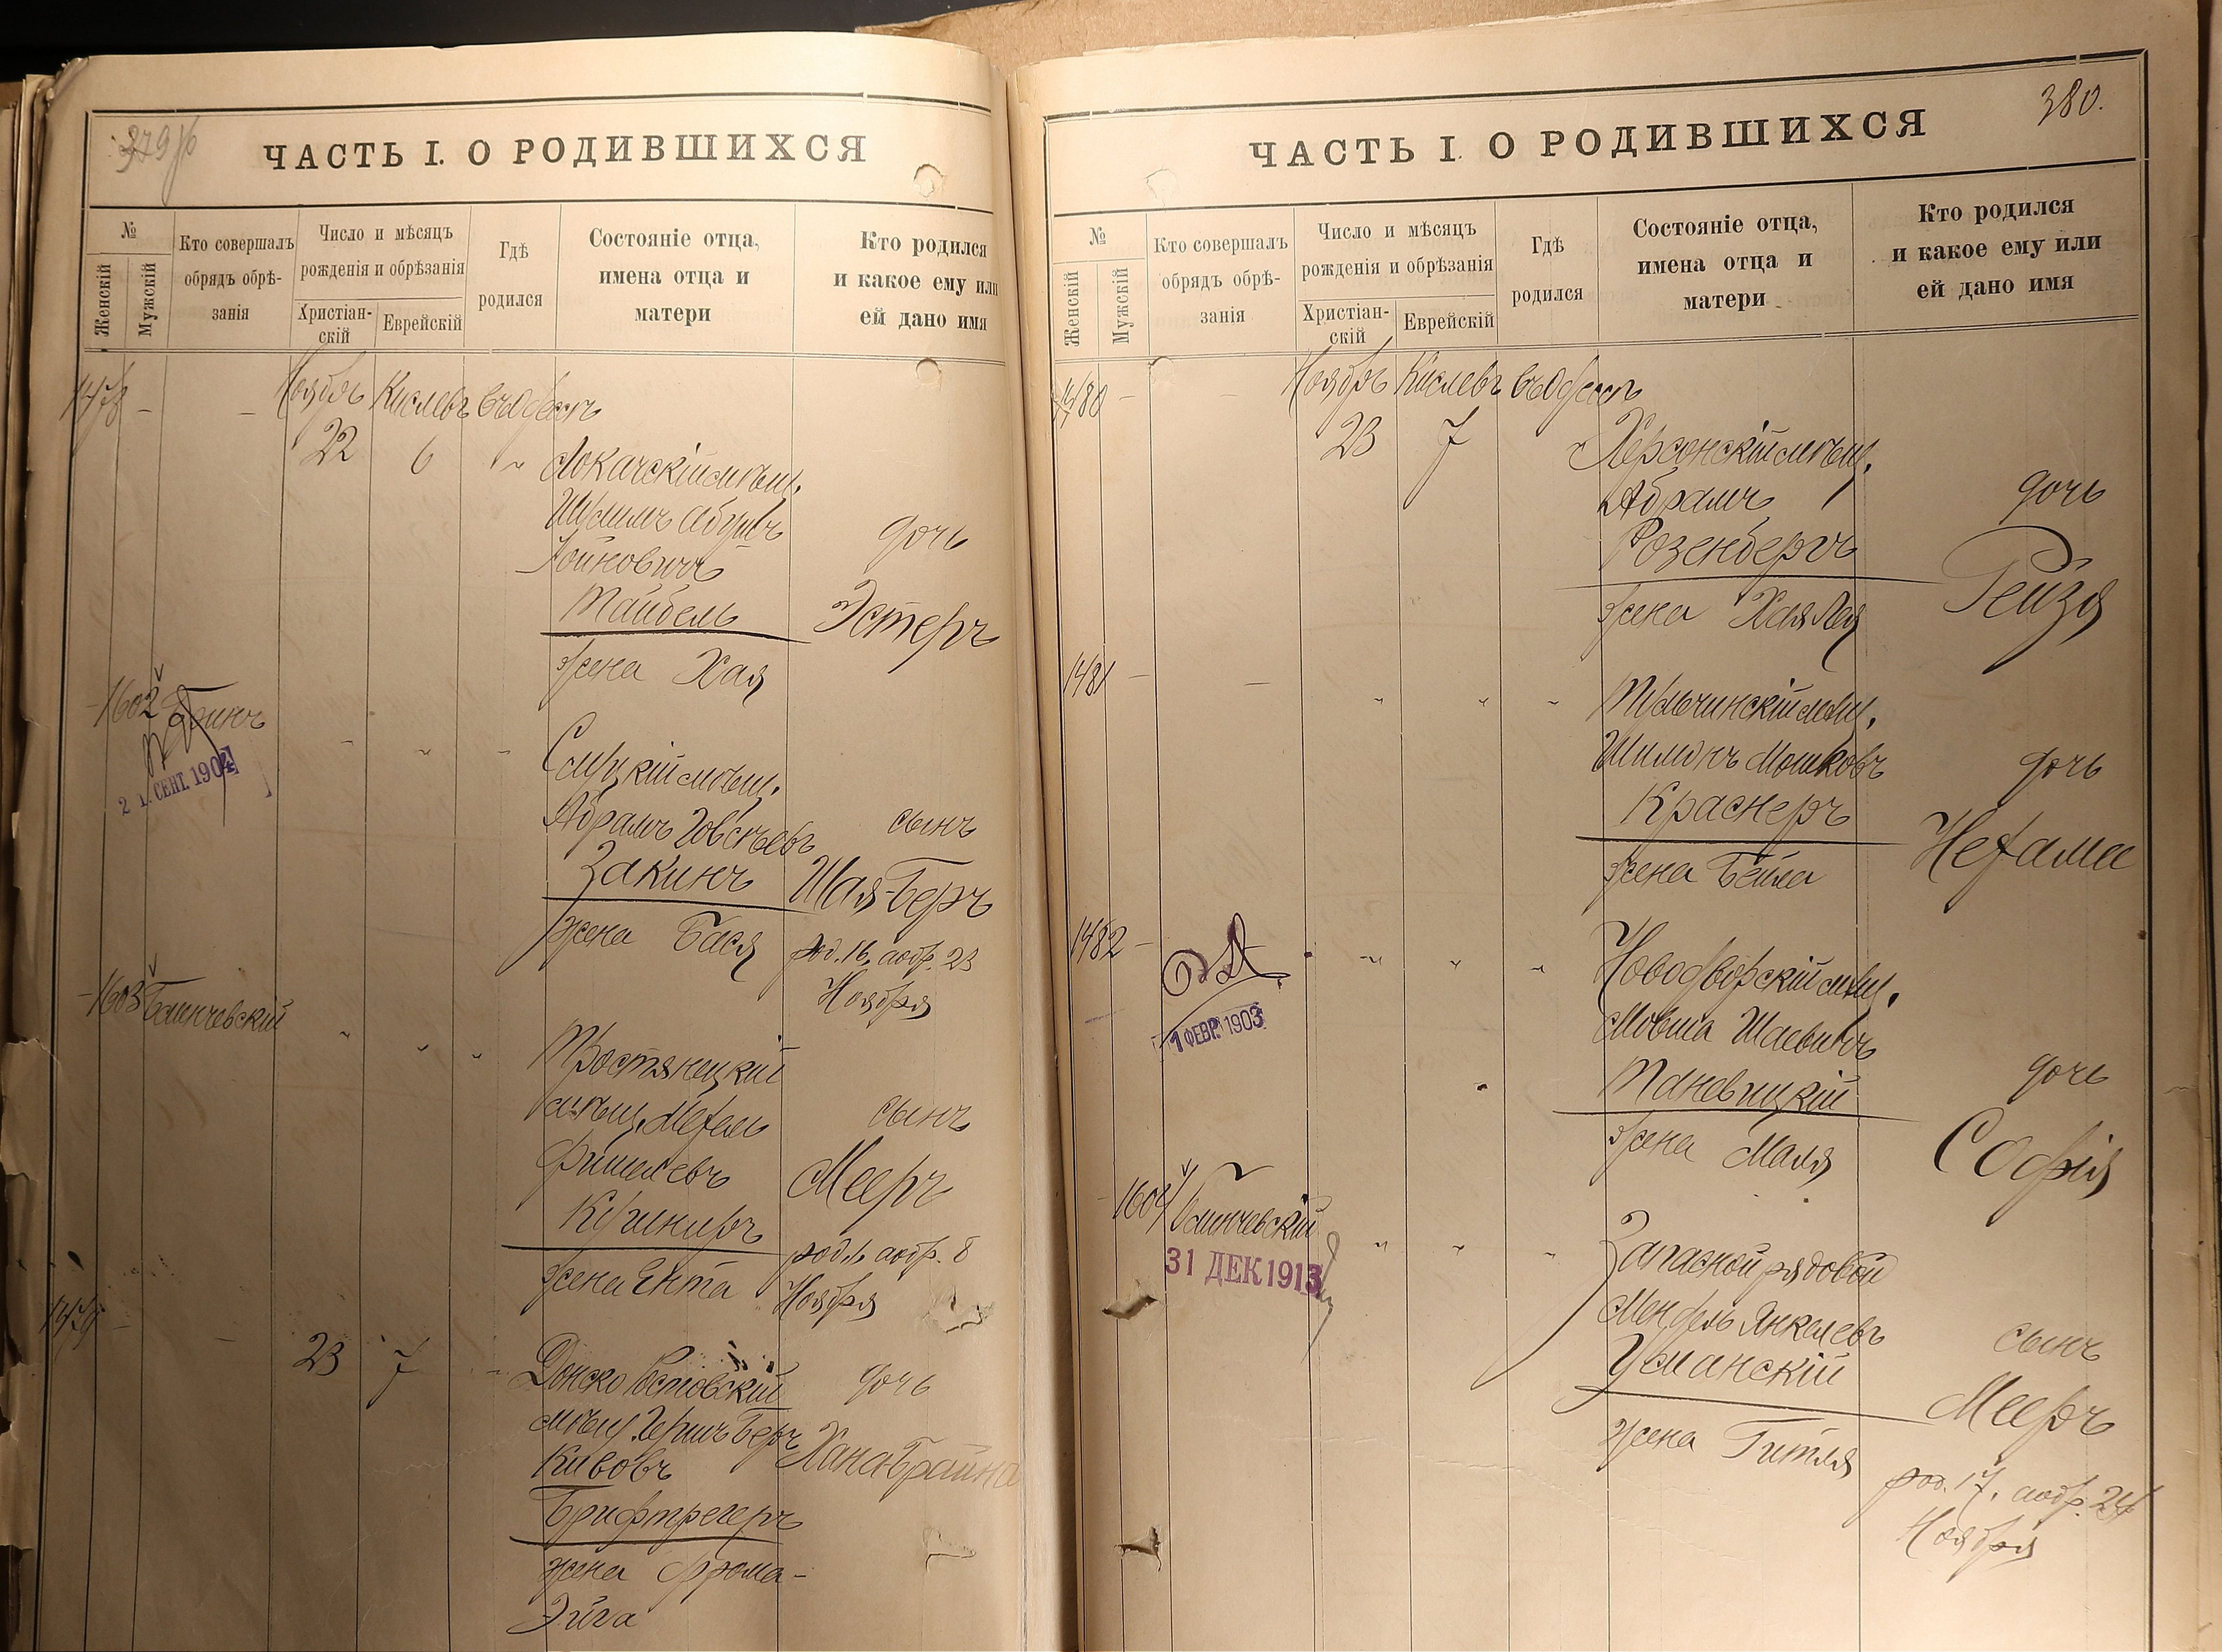 379 об
ЧАСТЬ I. О РОДИВШИХСЯ
№
Женскій
Мужскій
Кто совершалъ
обрядъ обрѣ-
занія
Число и мѣсяцъ
рожденія и обрѣзанія
Христіан-
скій
Еврейскій
Гдѣ
родился
Состояніе отца,
имена отца и
матери
Кто родился
и какое ему или
ей дано имя
1478 - -
Ноябрь Кислевъ въ Одессѣ
22 6 "
мѣщ.
Шулимъ
Тайбель
жена Хая
дочь
Эстеръ
1602
21. СЕНТ. 1904
" " "
Слуцкій мѣщ.
Абрамъ Іовсѣевъ
Закинъ
жена Бася
сынъ
Шая-Беръ
род. 16, аобр. 23
Ноября
1603 Блинчевский
" " "
Тростянецкій
мѣщ. Мехель
Фишелевъ
Кушниръ
жена Ента
сынъ
Мееръ
род. 1, аобр. 8
Ноября
1479 - -
23 7 "
Донско Ростовскій
мѣщ. Гершъ Беръ
Кивовъ
Брифтрегеръ
жена Фрома-
Эйга
дочь
Хана Брайна
380.
ЧАСТЬ I. О РОДИВШИХСЯ
№
Женскій
Мужскій
Кто совершалъ
обрядъ обрѣ-
занія
Число и мѣсяцъ
рожденія и обрѣзанія
Христіан-
скій
Еврейскій
Гдѣ
родился
Состояніе отца,
имена отца и
матери
Кто родился
и какое ему или
ей дано имя
1480 - -
Ноябрь Кислевъ въ Одессѣ
23 7 "
Херсонскій мѣщ.
Абрамъ
Розенбергъ
жена Хая Лея
дочь
Рейзя
1481 - -
" " "
Тульчинскій мѣщ.
Шимонъ Мошковъ
Краснеръ
жена Бейла
дочь
Нехама
1482 -
1 ФЕВР. 1903
" " "
Новодворскій мѣщ.
Мовша Шаевичъ
Таневицкій
жена Маля
дочь
Софія
1604 Блинчевский
31 ДЕК 1913
" " "
Запасной рядовой
Мендель Янкелевъ
Усманскій
жена Гитля
сынъ
Мееръ
род. 17, аобр. 24
Ноября